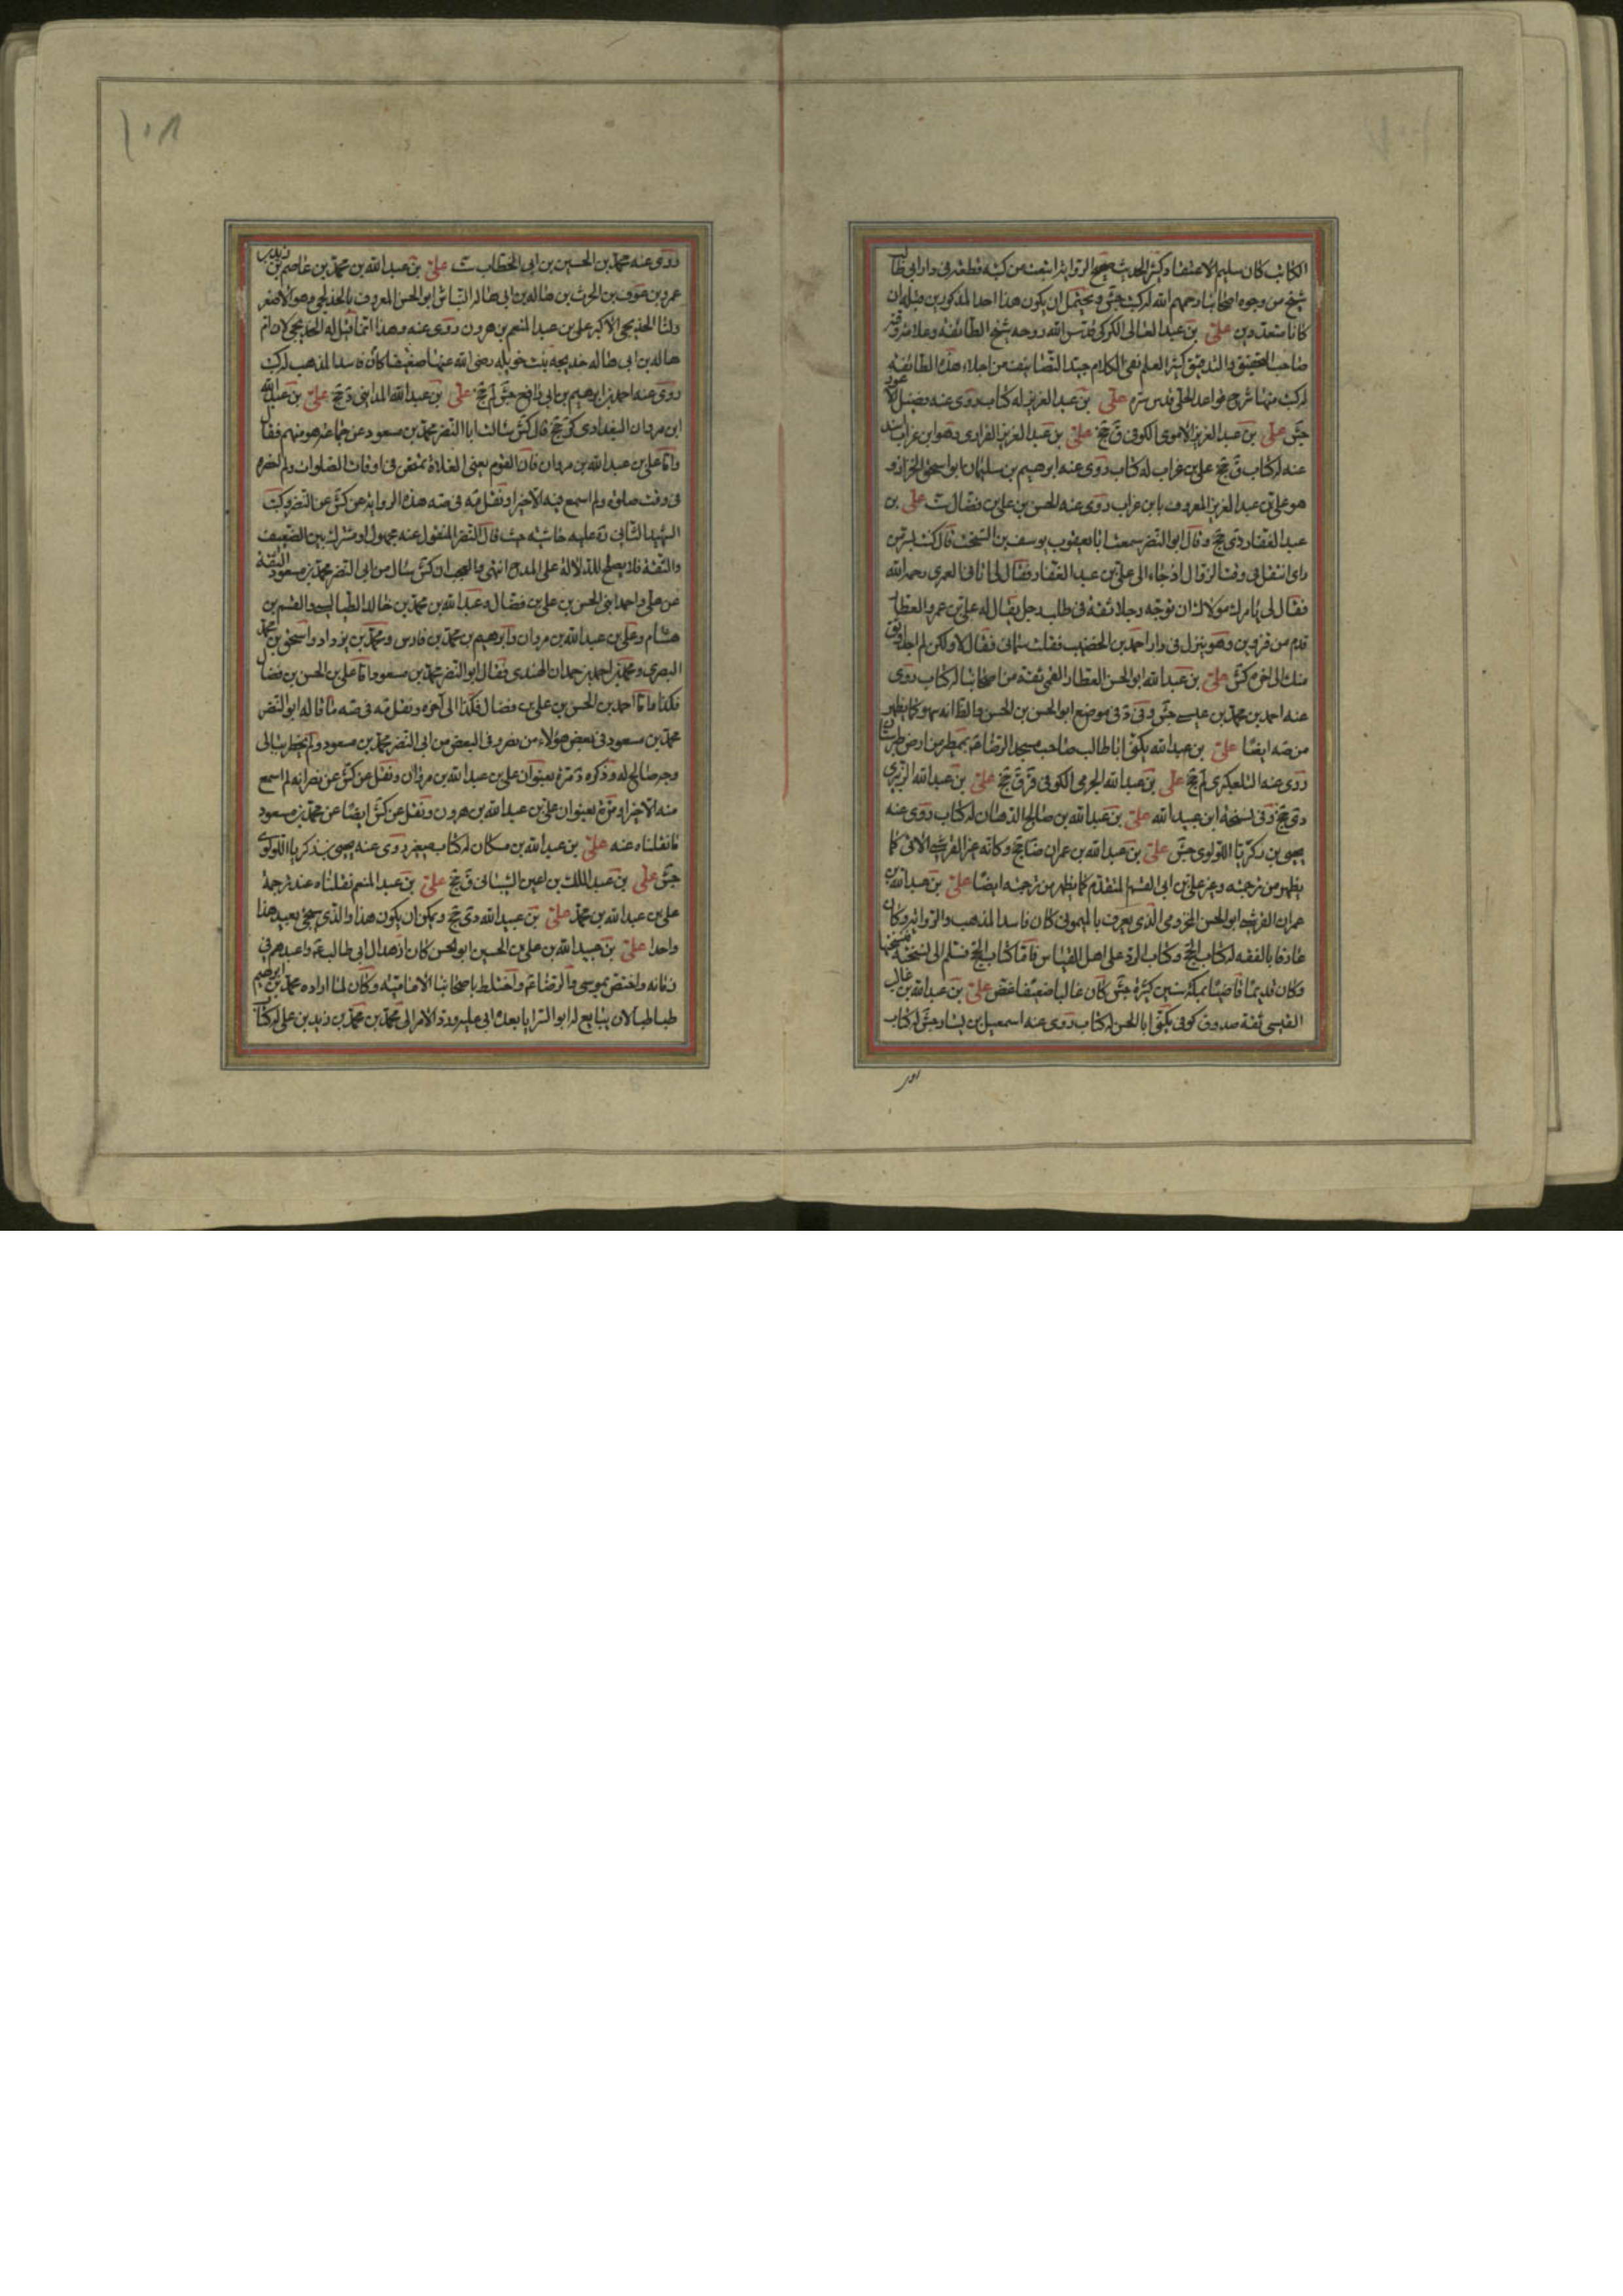 الكاتب كان سليم الاعتقاد كثير الحديث صحيح الرواية ابتعت من كتبه قطعة في دار ابي طالب
شيخ من وجوه اصحابنا رحمهم الله له كتب جش ويحتمل ان يكون هذا احد المذكورين قبله ان
كانا متعددين علي بن عبد العالي الكركي قدس الله روحه شيخ الطائفة وعلامة وقته
صاحب التحقيق والتدقيق كثير العلم نقي الكلام جيد التصانيف من اجلاء هذه الطائفة
له كتب منها شرح قواعد الحلي قدس سره علي بن عبد العزيز له كتاب روى عنه فضيل الاعور
جش علي بن عبد العزيز الاموي الكوفي ق جخ علي بن عبد العزيز الفزاري وهو ابن غراب اسند
عنه له كتاب ق جخ علي بن غراب له كتاب روى عنه ابرهيم بن سليمان ابو اسحق الخزاز و
هو علي بن عبد العزيز المعروف بابن غراب روى عنه الحسن بن علي بن فضال ست علي بن
عبد الغفار دي جخ وقال ابو النضر سمعت ابا يعقوب يوسف بن السخت قال كنت بسر من
راى انتفل في وقت الزوال اذ جاء الي علي بن عبد الغفار فقال لي اتانا العمري رحمه الله
فقال لي يامرك مولاك ان توجه رجلا ثقة في طلب رجل يقال له علي بن عمرو العطار
قدم من قزوين وهو ينزل في دار احمد بن الخضيب فقلت سماني فقال لا ولكن لم اجد اوثق
منك الى اخره كش علي بن عبد الله ابو الحسن العطار القمي ثقة من اصحابنا له كتاب روى
عنه احمد بن محمد بن عيسى جش وفي د في موضع ابو الحسن بن الحسن والظ انه سهو كما يظهر
من صه ايضا علي بن عبد الله يكنى ابا طالب صاحب مسجد الرضا ع بميطر من ارض طبرستان
روى عنه التلعكبري لم جخ علي بن عبد الله الجرمي الكوفي ق ر ق جخ علي بن عبد الله الزبيري
دي جخ وفي نسخة ابن عبيد الله علي بن عبد الله بن صالح الدهان له كتاب روى عنه
يحيى بن زكريا اللولوي جش علي بن عبد الله بن عمران ضا جخ وكانه غير القرشي الاتي كما
يظهر من ترجمته وغير علي بن ابي القسم المتقدم كما يظهر من ترجمته ايضا علي بن عبد الله بن
عمران القرشي ابو الحسن المخزومي الذي يعرف بالميموني كان فاسد المذهب والرواية وكان
عارفا بالفقه له كتاب الحج وكتاب الرد على اهل القياس فاما كتاب الحج فسلم الي نسخته فنسختها
وكان قديما قاضيا بمكة سنين كثيرة جش كان غاليا ضعيفا غض علي بن عبد الله بن غالب
القيسي ثقة صدوق كوفي يكنى ابا الحسن له كتاب روى عنه اسمعيل بن يسار جش له كتاب
روى عنه محمد بن الحسين بن ابي الخطاب ست علي بن عبد الله بن محمد بن عاصم بن زيد بن
عمرو بن عوف بن الحرث بن هالة بن ابي هالة النباش ابو الحسن المعروف بالخديجي وهو الاصغر
ولنا الخديجي الاكبر علي بن عبد المنعم بن هرون روى عنه وهذا انما قيل له الخديجي لان ام
هالة بن ابي هالة خديجة بنت خويلد رضي الله عنها ضعيفا كان فاسد المذهب له كتب
روى عنه احمد بن ابرهيم بن ابي رافع جش لم جخ علي بن عبد الله المدايني د جخ علي بن عبد الله
ابن مروان البغدادي كر جخ قال كش سالت ابا النضر محمد بن مسعود عن جماعة هو منهم فقال
واما علي بن عبد الله بن مروان فان القوم يعني الغلاة يمتحن في اوقات الصلوات ولم احضره
في وقت صلوة ولم اسمع فيه الا خيرا ونقل مه في صه هذه الرواية عن كش عن النضر وكتب
الشهيد الثاني ره عليه حاشية حيث قال النضر المنقول عنه مجهول او مشترك بين الضعيف
والثقة فلا يصلح للدلالة على المدح انتهى والعجب ان كش سال من ابي النضر محمد بن مسعود الثقة
عن علي واحمد ابني الحسن بن علي بن فضال وعبد الله بن محمد بن خالد الطيالسي والقسم بن
هشام وعلي بن عبد الله بن مروان وابرهيم بن محمد بن فارس ومحمد بن يزداد واسحق بن محمد
البصري ومحمد بن احمد بن حمدان الهندي فقال ابو النضر محمد بن مسعود اما علي بن الحسن بن فضال
فكذا واما احمد بن الحسن بن علي بن فضال فكذا الى آخره ونقل مه في صه ما قاله ابو النضر
محمد بن مسعود في بعض هؤلاء من نضر وفي البعض من ابي النضر محمد بن مسعود ولم يخطر ببالي
وجه صالح له وذكره د مرة بعنوان علي بن عبد الله بن مروان ونقل عن كش عن نضر انه لم اسمع
منه الا خيرا ومرة بعنوان علي بن عبد الله بن هرون ونقل عن كش ايضا عن محمد بن مسعود
ما نقلناه عنه علي بن عبد الله بن مسكان له كتاب صغير روى عنه يحيى بن زكريا اللولوي
جش علي بن عبد الملك بن اعين الشيباني ق جخ علي بن عبد المنعم نقلناه عند ترجمة
علي بن عبد الله بن محمد علي بن عبيد الله دي جخ ويمكن ان يكون هذا والذي سيجئ بعيد هذا
واحدا علي بن عبيد الله بن علي بن الحسين ابو الحسن كان ازهد ال ابي طالب ع واعبدهم في
زمانه واختص بموسى والرضا ع واختلط باصحابنا الامامية وكان لما اراده محمد بن ابرهيم
طباطبا لان يبايع له ابو السرايا بعده ابى عليه ورد الامر الى محمد بن محمد بن زيد بن علي له كتاب